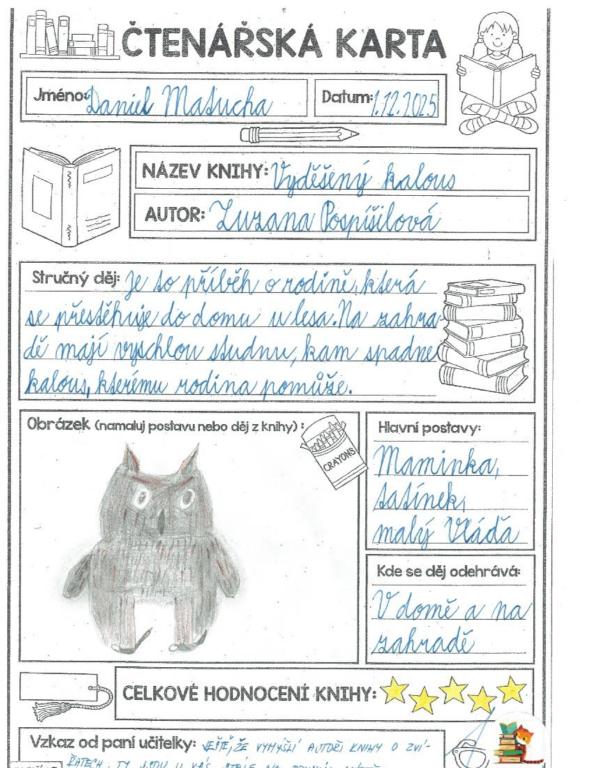 ČTENÁŘSKÁ KARTA
Jméno: Daniel Matucha Datum: 1.12.2025
NÁZEV KNIHY: Vyděšený kalous
AUTOR: Zuzana Pospíšilová
Stručný děj: Je to příběh o rodině, která
se přestěhuje do domu u lesa. Na zahra
dě mají vyschlou studnu, kam spadne
kalous, kterému rodina pomůže.
Obrázek (namaluj postavu nebo děj z knihy):
CRAYONS
Hlavní postavy:
Maminka,
tatínek,
malý Vláďa
Kde se děj odehrává:
V domě a na
zahradě
CELKOVÉ HODNOCENÍ KNIHY:
Vzkaz od paní učitelky: JEŠTĚ, ŽE VYMYSLÍ AUTOŘI KNIHU O ZVÍ-
ŘATECH, TY JSOU U VÁS STÁLE NA